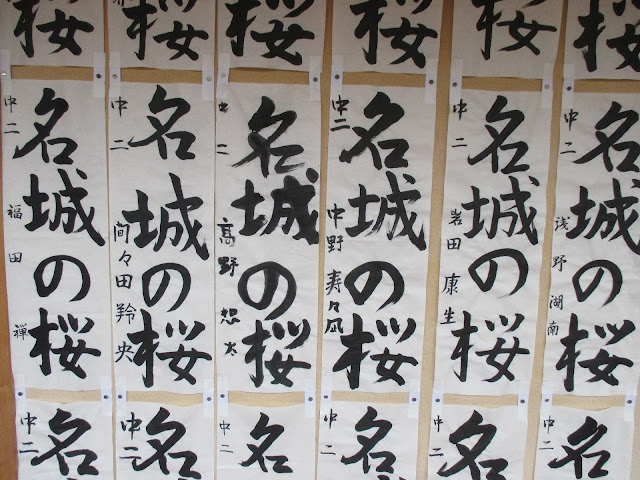 桜
桜
桜
桜
桜
桜
名城の桜
中二 浅野湖南
名城の桜
中二 岩田康生
名城の桜
中二 中野寿々凪
名城の桜
中二 高野想太
名城の桜
中二 間々田羚央
名城の桜
中二 福田禅
名
中二
名
中二
名
中二
名
中二
名
中二
名
中二